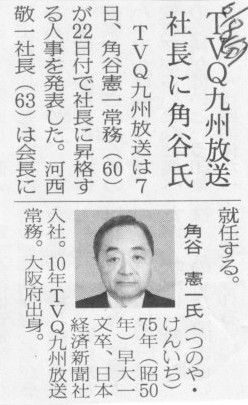 TVQ九州放送
社長に角谷氏
TVQ九州放送は7
日、角谷憲一常務（60）
が22日付で社長に昇格す
る人事を発表した。河西
敬一社長（63）は会長に
就任する。
角谷　憲一氏（つのや・
けんいち）
75年（昭50
年）早大一
文卒、日本
経済新聞社
入社。10年TVQ九州放送
常務。大阪府出身。